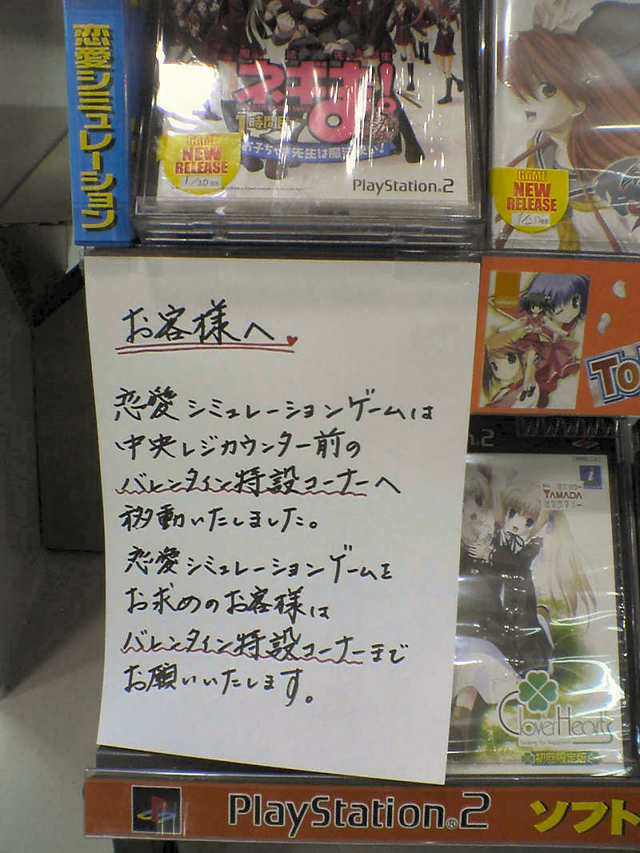 恋愛シミュレーション
ネギま!
1時間目
お子ちゃま先生は魔法使い!
GAME
NEW
RELEASE
PlayStation 2
GAME
NEW
RELEASE
お客様へ
恋愛シミュレーションゲームは
中央レジカウンター前の
バレンタイン特設コーナーへ
移動いたしました。
恋愛シミュレーションゲームを
お求めのお客様は
バレンタイン特設コーナーまで
お願いいたします。
To
YAMADA
Clover Hearts
初回限定版
PlayStation®2 ソフト